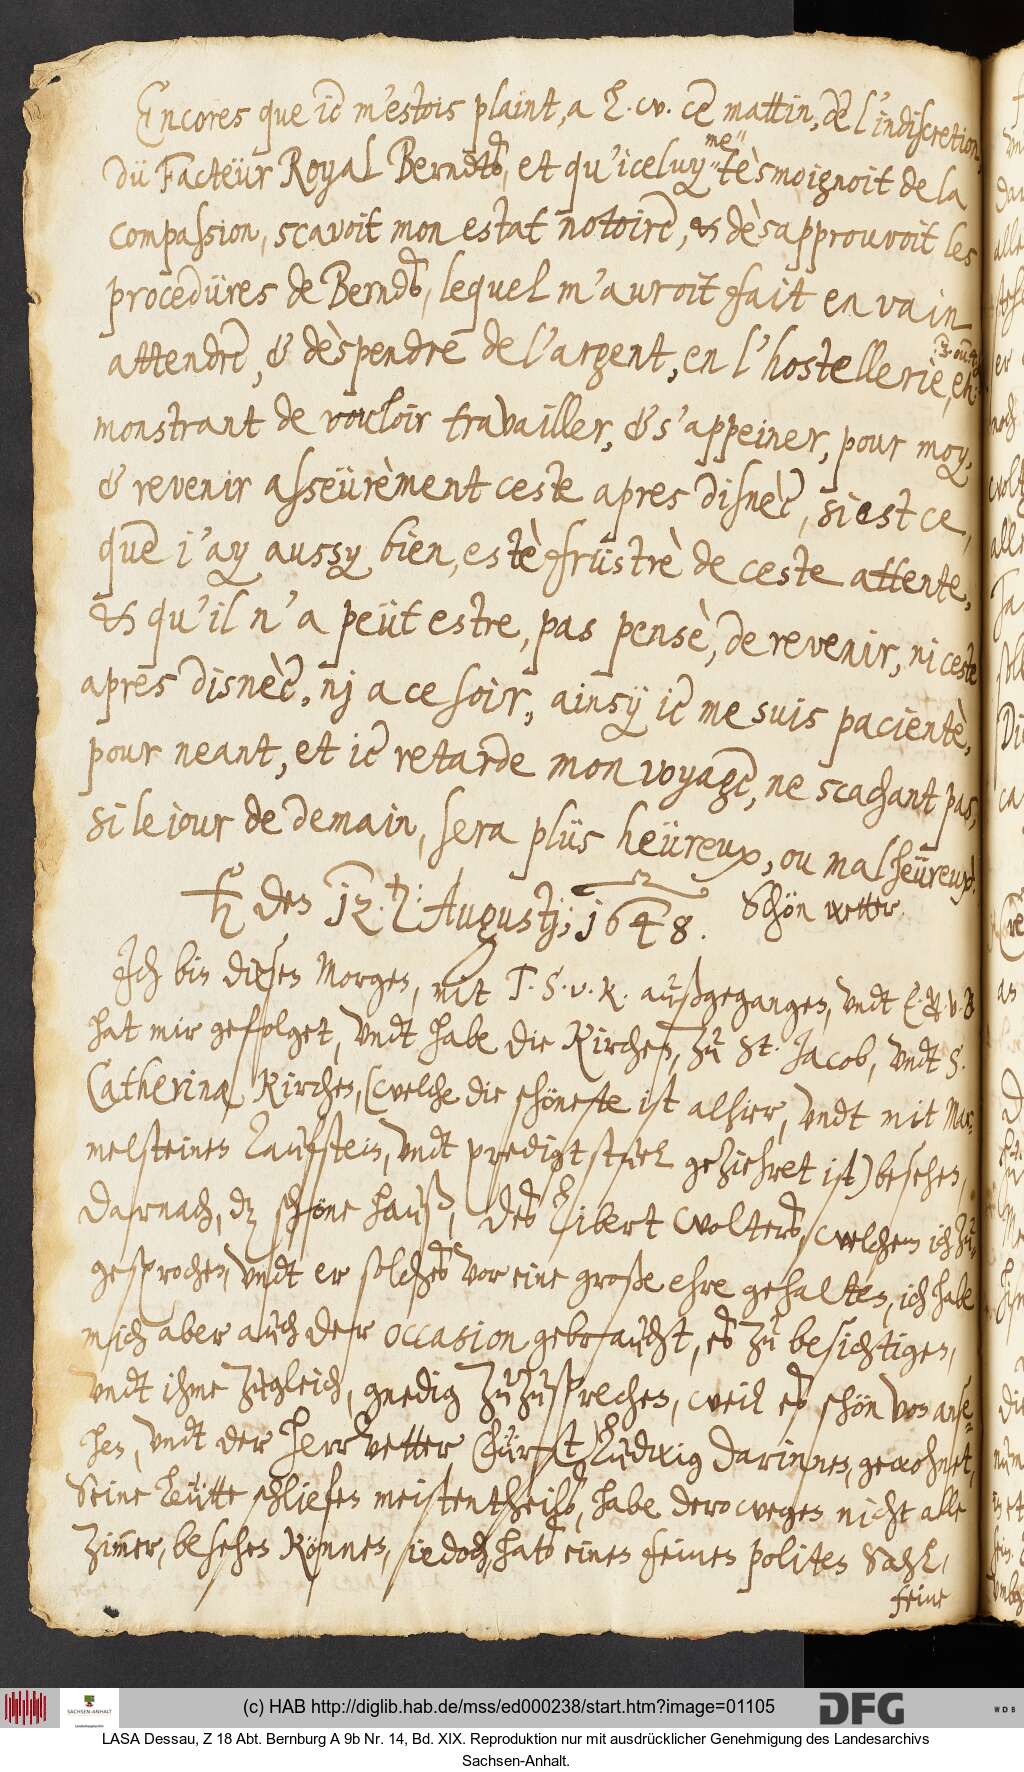 Encores que ie m'estois plaint, a L. W. ce mattin, de l'indiscretion,
dü Facteür Royal Berndts, et qu'iceluy me tèsmoignoit de la
compassion, scavoit mon estat notoire, & dèsapprouvoit les
procedüres de Berndts, lequel m'auroit fait en vain
attendre, & dèspendre de l'argent, en l'hostellerie, en
monstrant de vouloir travailler, & s'appeiner, pour moy,
& revenir asseürèment ceste apres disnèe, si est ce,
que i'ay aussy bien, estè früstrè de ceste attente,
& qu'il n'a peüt estre, pas pensè, de revenir, ni ceste
apres disnèe, nj a ce soir, ainsÿ ie me suis pacientè,
pour neant, et ie retarde mon voyage, ne scachant pas,
si le iour de demain, sera plüs heüreux, ou malheüreux.
♄ den 12. t: Augustj; 1648. Schön wetter.
Ich bin diesen Morgen, mit T. S. v. K. außgegangen, vndt
hat mir gefolget, vndt habe die Kirchen, zu St. Jacob, vndt S.
Catherinæ Kirchen, (welche die schöneste ist alhier, vndt mit Mar-
melsteinen Tauffstein, vndt predigtstuel geziehret ist) besehen,
Darnach, dz schöne hauß, des Libert Wolters, welchem ich zu-
gesprochen, vndt er solches vor eine große ehre gehalten, ich habe
mich aber auch der occasion gebraucht, es zu besichtigen,
vndt ihme zugleich, gnedig zuzusprechen, weil es schön von anse-
hen, vndt der herrvetter, Fürst Ludwig darinnen, gewohnet,
Seine Leütte schliefen meistentheils, habe derowegen nicht alle
Zimmer, besehen können, iedoch hats einen feinen politen Sahl,
feine
(c) HAB http://diglib.hab.de/mss/ed000238/start.htm?image=01105
SACHSEN-ANHALT
DFG
WDB
LASA Dessau, Z 18 Abt. Bernburg A 9b Nr. 14, Bd. XIX. Reproduktion nur mit ausdrücklicher Genehmigung des Landesarchivs
Sachsen-Anhalt.